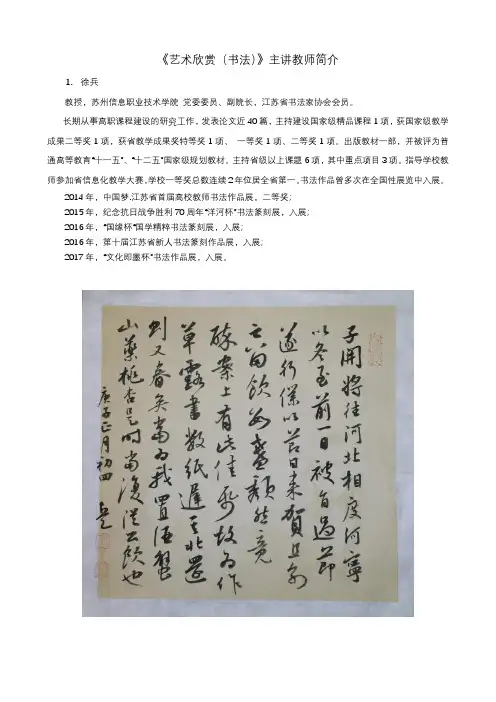 《艺术欣赏(书法)》主讲教师简介
1. 徐兵
教授,苏州信息职业技术学院 党委委员、副院长,江苏省书法家协会会员。
长期从事高职课程建设的研究工作,发表论文近40篇,主持建设国家级精品课程1项,获国家级教学
成果二等奖1项,获省教学成果奖特等奖1项、一等奖1项、二等奖1项。出版教材一部,并被评为普
通高等教育“十一五”、“十二五”国家级规划教材。主持省级以上课题6项,其中重点项目3项。指导学校教
师参加省信息化教学大赛,学校一等奖总数连续2年位居全省第一。书法作品曾多次在全国性展览中入展。
2014年,中国梦.江苏省首届高校教师书法作品展,二等奖;
2015年,纪念抗日战争胜利70周年“洋河杯”书法篆刻展,入展;
2016年,“国缘杯”国学精粹书法篆刻展,入展;
2016年,第十届江苏省新人书法篆刻作品展,入展;
2017年,“文化即墨杯”书法作品展,入展。
子開將往河北相度河寧
以冬至前一日被旨過節
遂行僕以節日来賀且別
之留飲数盞頹然竟
醉案上有此佳紙故为作
草露書數紙遲其北還
則又春矣當为我置酒蟹
山藥桃杏是時當復從公飲也
庚子正月初四